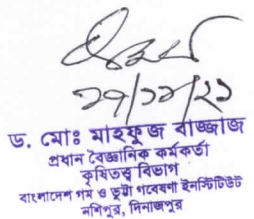 ২৭/১১/২১
ড. মোঃ মাহফুজ বাজ্জাজ
প্রধান বৈজ্ঞানিক কর্মকর্তা
কৃষিতত্ত্ব বিভাগ
বাংলাদেশ গম ও ভুট্টা গবেষণা ইনস্টিটিউট
নশিপুর, দিনাজপুর